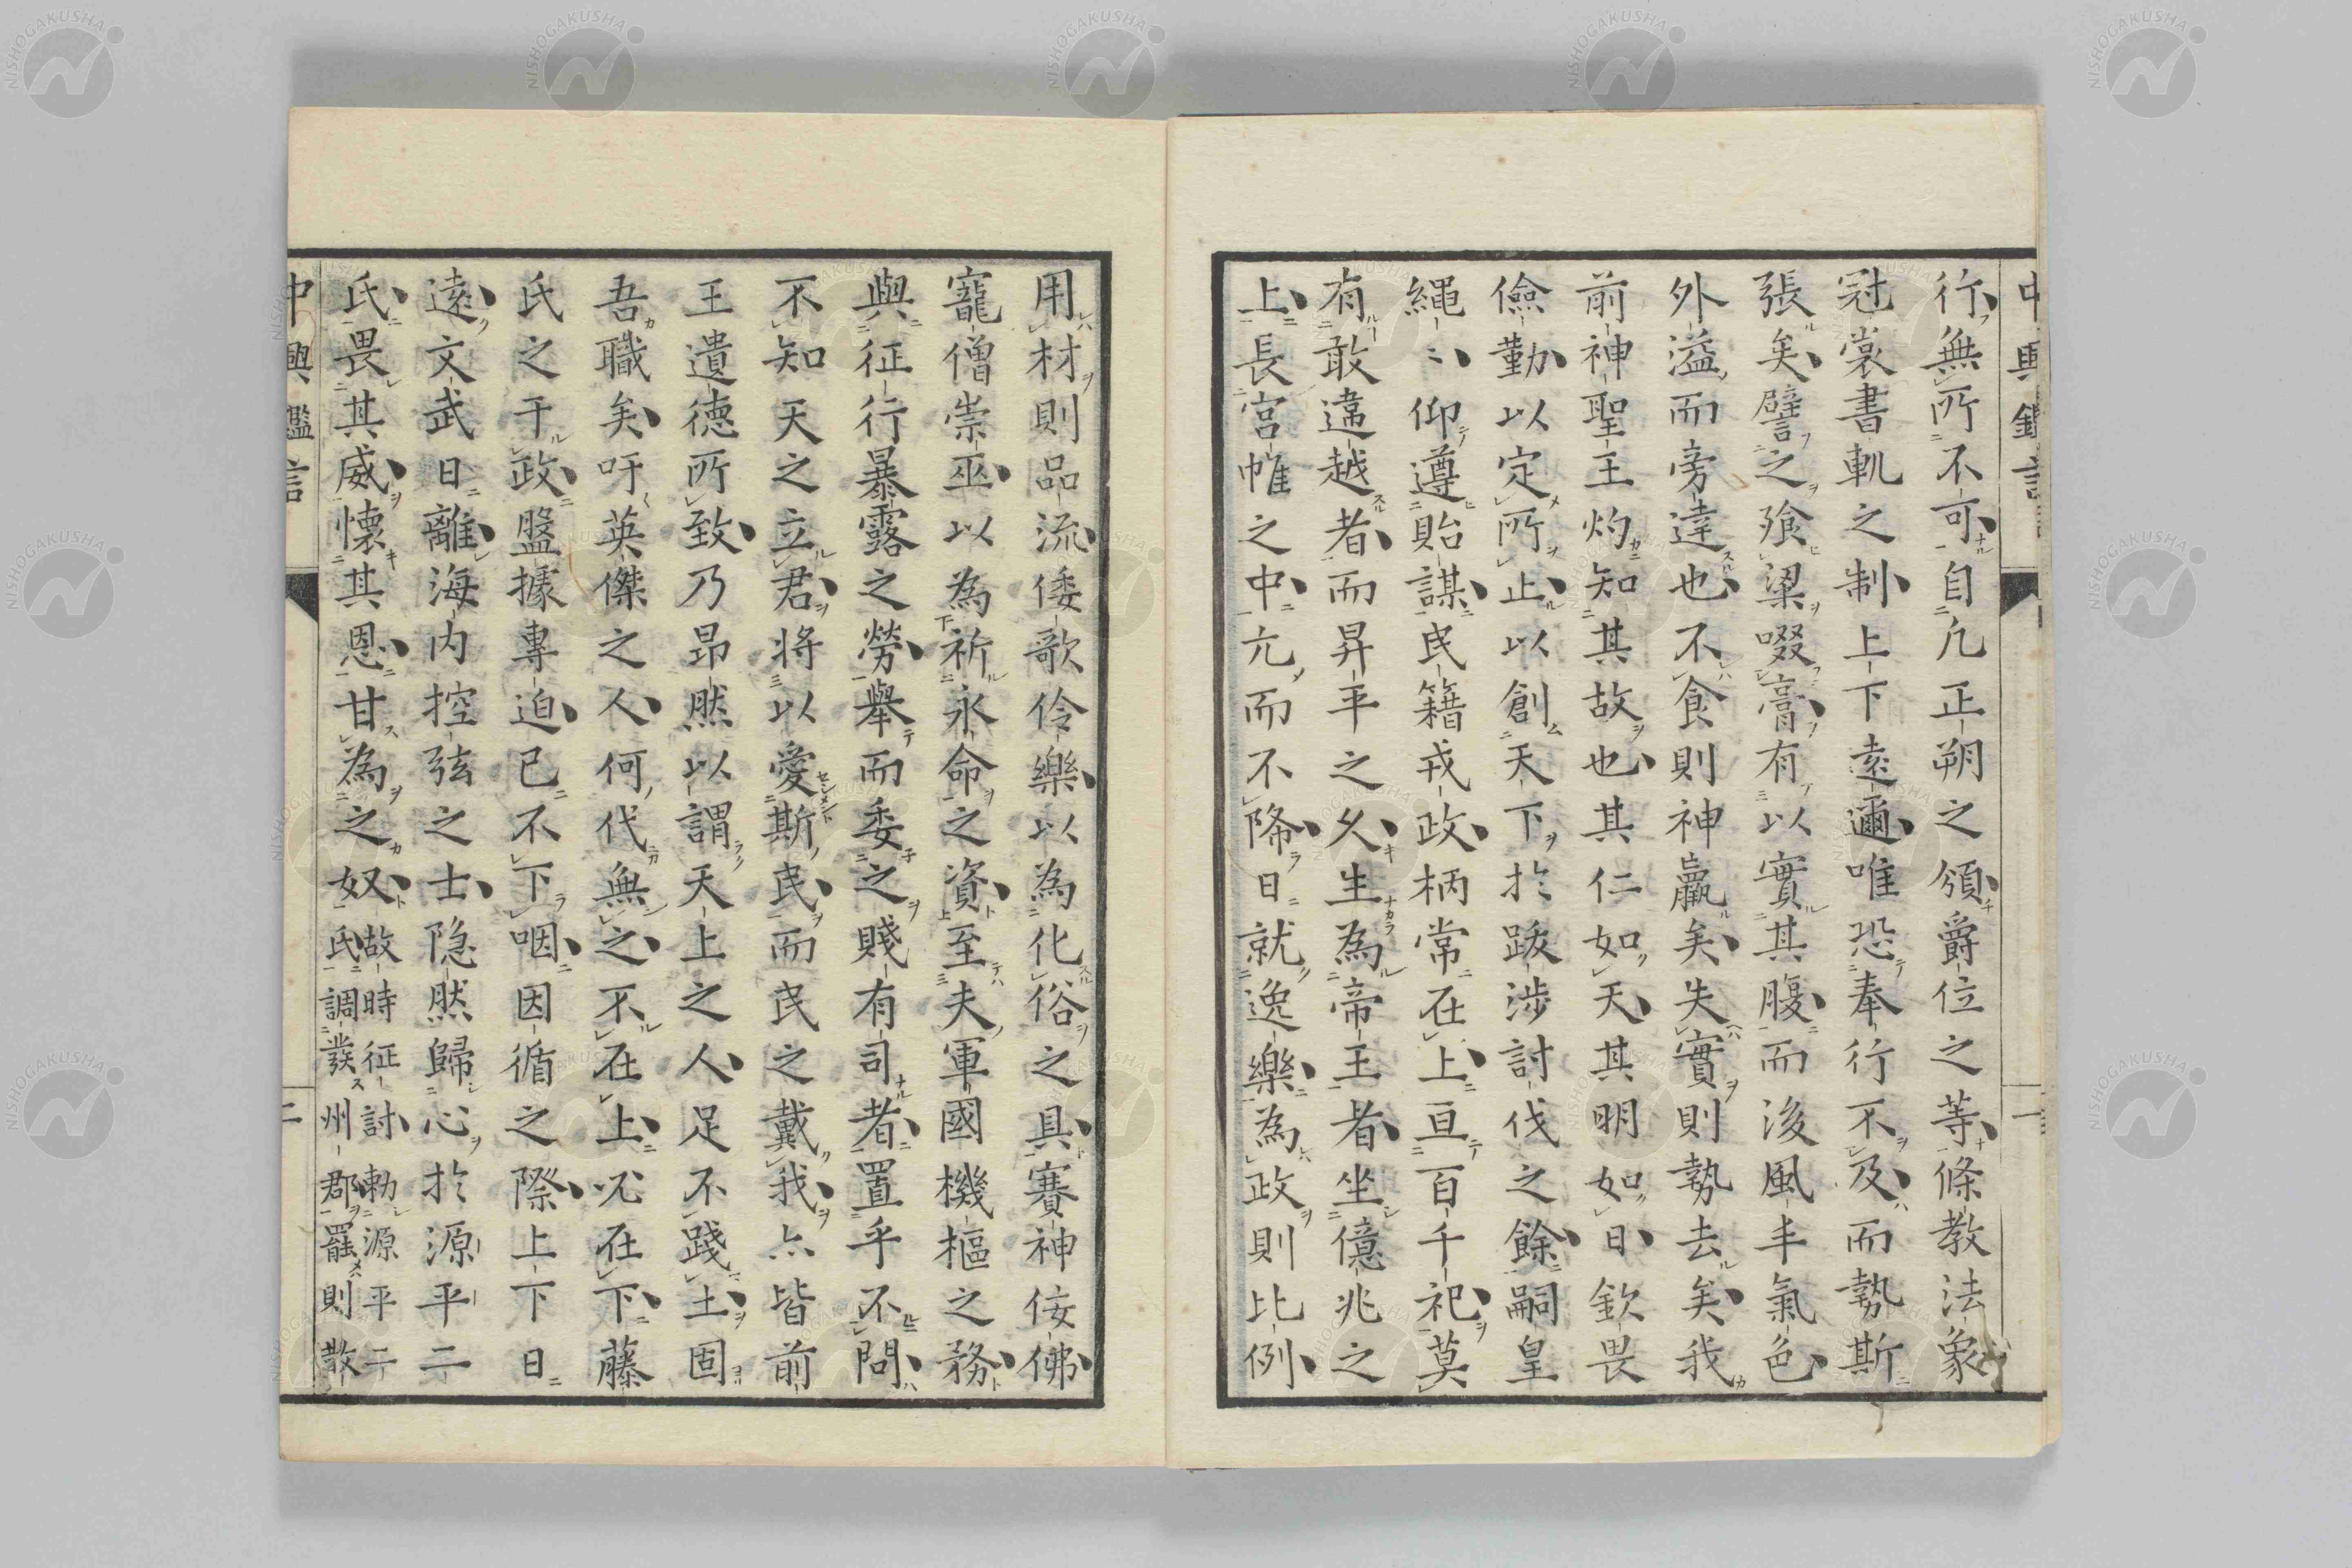 行無所不可自凡正朔之頒爵位之等條教法象
冠裳書軌之制上下遠邇唯恐奉行不及而勢斯
張矣譬之飱粱啜膏有以實其腹而後風丰氣色
外溢而旁達也不食則神羸矣失實則勢去矣我
前神聖王灼知其故也其仁如天其明如日欽畏
儉勤以定所止以創天下於跋涉討伐之餘嗣皇
繩〻仰遵貽謀民籍戎政柄常在上亘百千祀莫
有敢違越者而昇平之久生為帝王者坐億兆之
上長宮帷之中亢而不降日就逸樂為政則比例
用材則品流倭歌伶樂以為化俗之具賽神佞佛
寵僧崇巫以為祈永命之資至夫軍國機樞之務
與征行暴露之勞舉而委之賤有司者置乎不問
不知天之立君將以愛斯民而民之戴我亦皆前
王遺德所致乃昂然以謂天上之人足不踐土固
吾職矣吁英傑之人何代無之不在上必在下藤
氏之于政盤據專迫已不下咽因循之際上下日
遠文武日離海内控弦之士隐然歸心於源平二
氏畏其威懷其恩甘為之奴故時征討勅源平二
氏調發州郡罷則散
中興鑑言
二
NISHOGAKUSHA